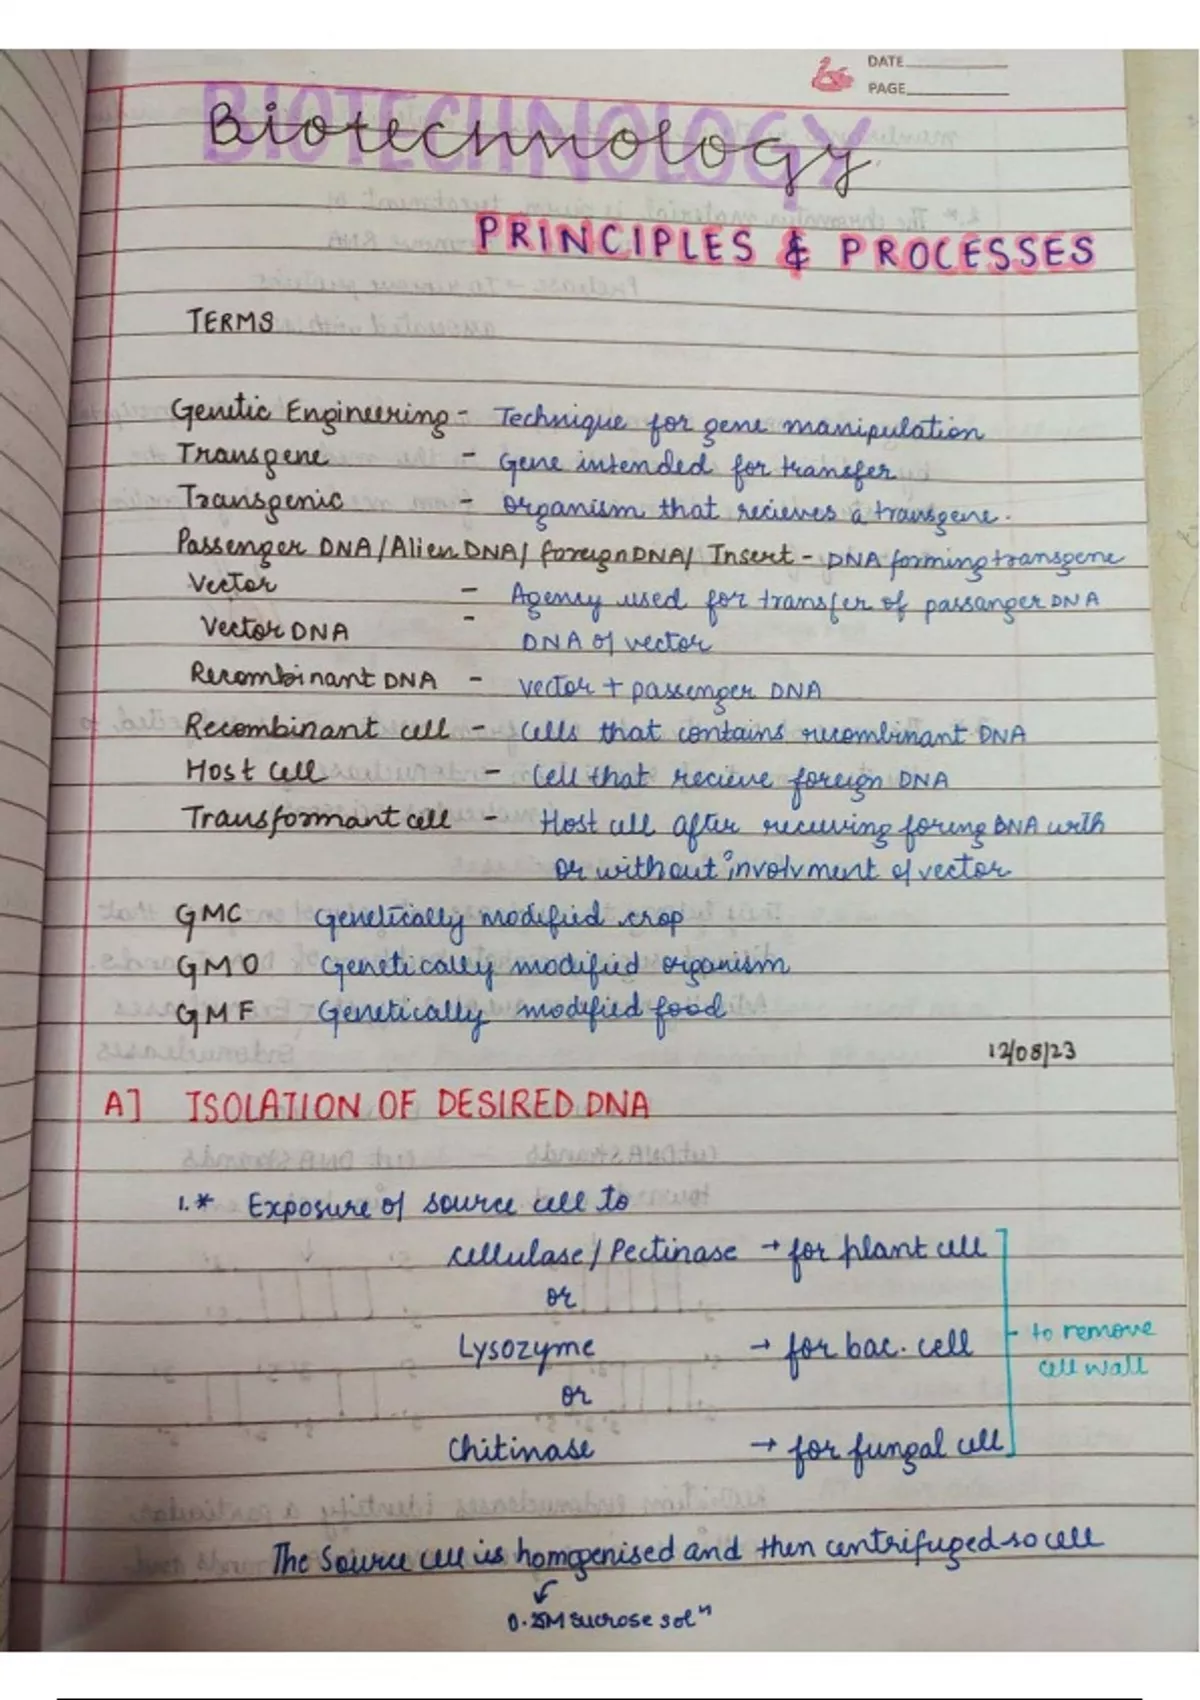 DATE
PAGE
BIOTECHNOLOGY
Biotechnology
PRINCIPLES & PROCESSES
TERMS
Genetic Engineering - Technique for gene manipulation
Transgene - Gene intended for transfer
Transgenic - organism that recieves a transgene.
Passenger DNA/Alien DNA/ foreign DNA/ Insert - DNA forming transgene
Vector - Agency used for transfer of passanger DNA
Vector DNA - DNA of vector
Recombinant DNA - vector + passenger DNA
Recombinant cell - Cells that contains recombinant DNA
Host Cell - Cell that recieve foreign DNA
Transformant cell - Host cell after receiving foreing DNA with
or without involvment of vector
GMC Genetically modified crop
GMO Genetically modified organism
GMF Genetically modified food
12/08/23
A] ISOLATION OF DESIRED DNA
1.* Exposure of source cell to
cellulase/Pectinase → for plant cell
or
Lysozyme → for bac. cell
to remove
cell wall
or
Chitinase → for fungal cell
The Source cell is homogenised and then centrifuged so cell
0.25M sucrose solⁿ